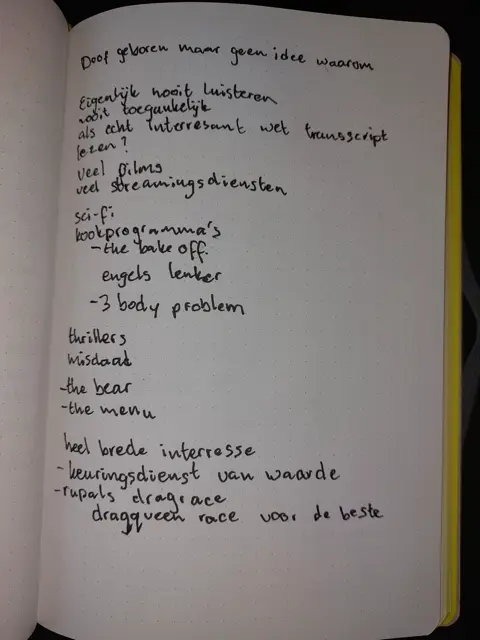 Doof geboren maar geen idee waarom
Eigenlijk nooit luisteren
nooit toegankelijk
als echt interresant wet transscript
lezen?
veel films
veel streamingsdiensten
sci-fi
kookprogramma's
- the bake off.
engels lenker
- 3 body problem
thrillers
misdaad
- the bear
- the menu
heel brede interresse
- keuringsdienst van waarde
- rupals dragrace
dragqueen race voor de beste